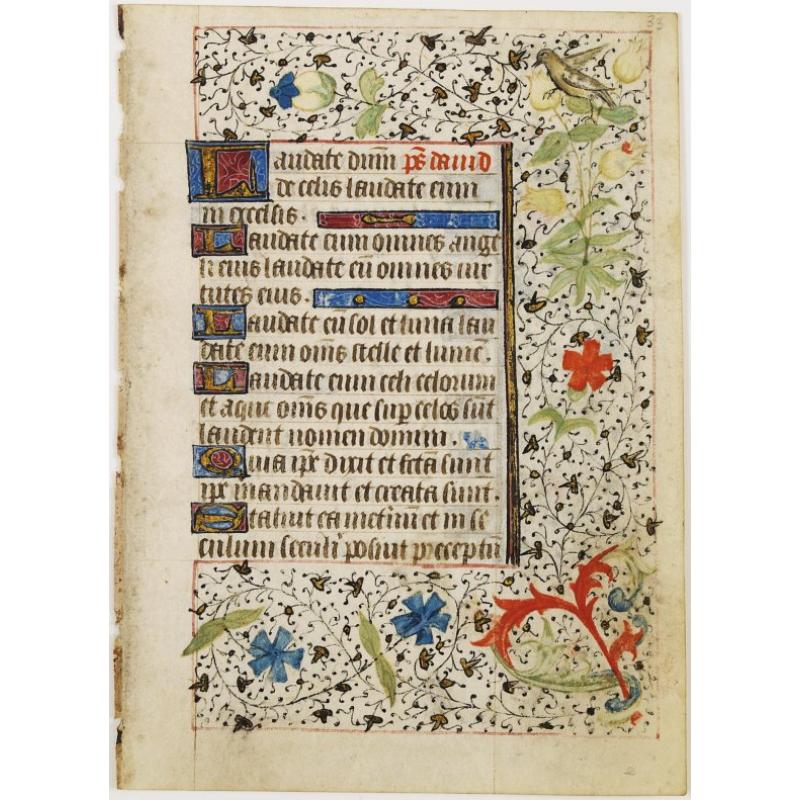 33
Laudate dnm ps david
de celis laudate eum
in excelsis.
Laudate eum omnes ange
li eius laudate eū omnes uir
tutes eius.
Laudate eū sol et luna lau
date eum oms stelle et lumē.
Laudate eum celi celorum
et aque oms que sup celos sūt
laudent nomen domini.
Quia ipe dixit et fcā sunt
ipe mandauit et creata sunt.
Statuit ea in etnum et in se
culum seculi posuit preceptū